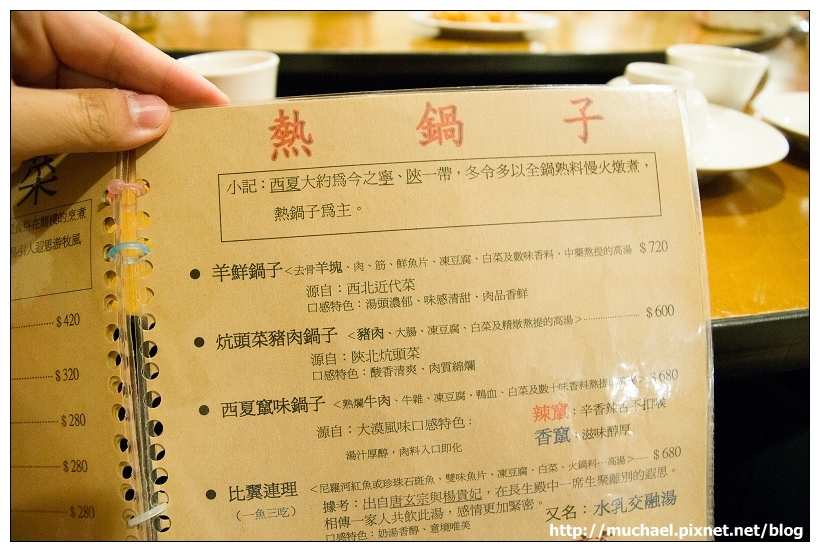 菜
$420
$320
$280
$280
$280
熱 鍋 子
小記：西夏大約為今之寧、陝一帶，冬令多以全鍋熟料慢火燉煮，
熱鍋子為主。
● 羊鮮鍋子<去骨羊塊、肉、筋、鮮魚片、凍豆腐、白菜及數味香料、中藥熬提的高湯 $720
源自：西北近代菜
口感特色：湯頭濃郁、味感清甜、肉品香鮮
● 炕頭菜豬肉鍋子 <豬肉、大腸、凍豆腐、白菜及精燉熬提的高湯> $600
源自：陝北炕頭菜
口感特色：酸香清爽、肉質綿爛
● 西夏竄味鍋子 <熟爛牛肉、牛雜、凍豆腐、鴨血、白菜及數十味香料熬提的高湯> $680
源自：大漠風味口感特色：
辣竄：辛香辣舌不扣喉
湯汁厚醇，肉料入口即化
香竄：滋味醇厚
● 比翼連理 <尼羅河紅魚或珍珠石斑魚、雙味魚片、凍豆腐、白菜、火鍋料…高湯> $680
（一魚三吃）
據考：出自唐玄宗與楊貴妃，在長生殿中一席生聚離別的遐思。
相傳一家人共飲此湯，感情更加緊密。
又名：水乳交融湯
口感特色：奶湯香醇、意境唯美
http://muchael.pixnet.net/blog